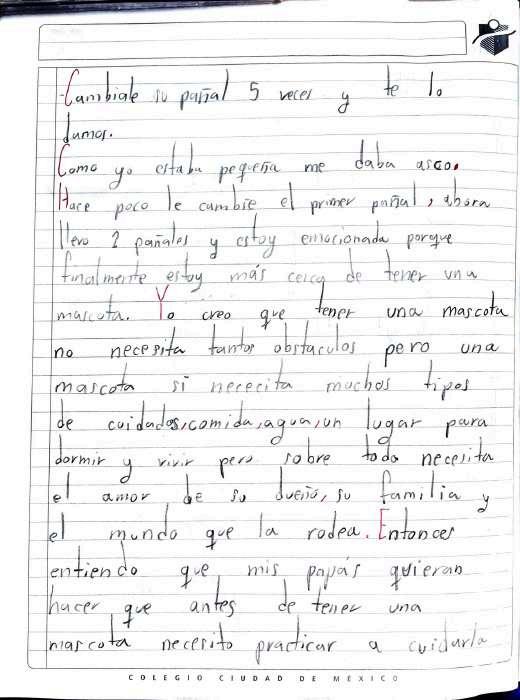 -Cambiale su pañal 5 veces y te lo
damos.
Como yo estaba pequeña me daba asco.
Hace poco le cambie el primer pañal, ahora
llevo 2 pañales y estoy emocionada porque
finalmente estoy más cerca de tener una
mascota. Yo creo que tener una mascota
no necesita tantos obstaculos pero una
mascota si nececita muchos tipos
de cuidados, comida, agua, un lugar para
dormir y vivir pero sobre todo necesita
el amor de su dueño, su familia y
el mundo que la rodea. Entonces
entiendo que mis papás quieran
hacer que antes de tener una
mascota necesito practicar a cuidarla
COLEGIO CIUDAD DE MÉXICO